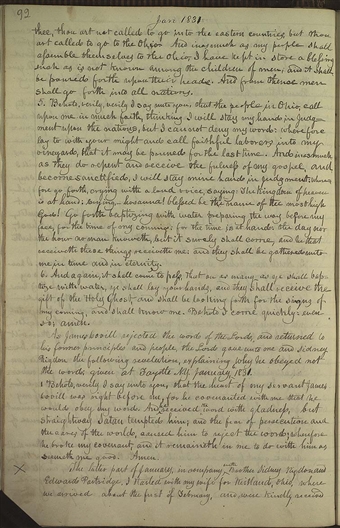 92
Jan 1831.
thee, thou art not called to go into the eastern countries but thou
art called to go to the Ohio. And inasmuch as my people shall
assemble themselves to the Ohio, I have kept in store a blessing
such as is not known among the children of men, and it shall
be poured forth upon their heads. And from thence men
shall go forth into all nations.
5. Behold, verily, verily I say unto you, that the people in Ohio, call
upon me in much faith, thinking I will stay my hand in judg-
ment upon the nations, but I cannot deny my word: wherefore
lay to with your might and call faithful laborers into my
vineyard, that it may be pruned for the last time. And inasmuch
as they do repent and receive the fulness of my gospel, and
become sanctified, I will stay mine hand in judgment: wherefore
go forth, crying with a loud voice, saying: The kingdom of heaven
is at hand; crying hosanna! blessed be the name of the most high
God! Go forth baptizing with water preparing the way before my
face, for the time of my coming; for the time is at hand: the day nor
the hour no man knoweth, but it surely shall come, and he that
receiveth these things receiveth me: and they shall be gathered unto
me in time and in eternity.
6 And again, it shall come to pass, that on as many as ye shall bap-
tize with water, ye shall lay your hands, and they shall receive the
gift of the Holy Ghost, and shall be looking forth for the signs of
my coming, and shall know me. Behold I come quickly: even
so: amen.
As James Covill rejected the word of the Lord, and returned to
his former principles and people, the Lord gave unto me and Sidney
Rigdon the following revelation, explaining why he obeyed not
the word: given at Fayette N.Y. January, 1831.
1 Behold, verily I say unto you, that the heart of my servant James
Covill was right before me, for he covenanted with me that he
would obey my word. And he received the word with gladness, but
straightway Satan tempted him; and the fear of persecution and
the cares of the world, caused him to reject the word; wherefore
he broke my covenant, and it remaineth in me to do with him as
seemeth me good: Amen.
The latter part of January, in company with Brother Sidney Rigdon and
Edward Partridge, I started with my wife for Kirtland, Ohio, where
we arrived about the first of February, and were kindly received